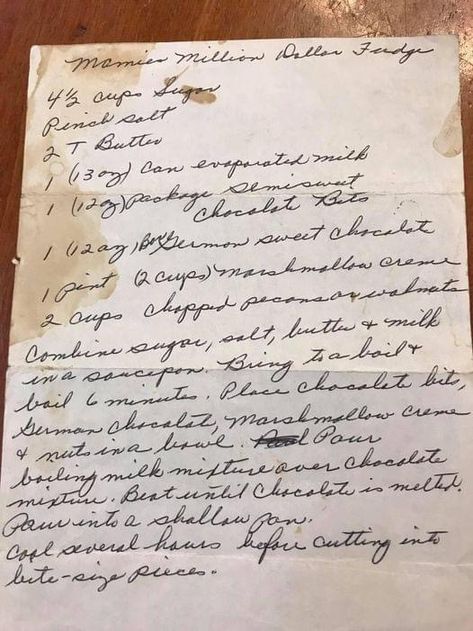 Mamies Million Dollar Fudge
4 1/2 cups Sugar
Pinch salt
2 T Butter
1 (13 oz) can evaporated milk
1 (12 oz) package Semisweet
Chocolate Bits
1 (12 oz) German sweet chocolate
1 pint (2 cups) marshmallow creme
2 cups chopped pecans or walnuts
Combine sugar, salt, butter & milk
in a saucepan. Bring to a boil &
boil 6 minutes. Place chocolate bits,
German chocolate, marshmallow creme
& nuts in a bowl. Pour
boiling milk mixture over chocolate
mixture. Beat until chocolate is melted.
Pour into a shallow pan.
Cool several hours before cutting into
bite-size pieces.